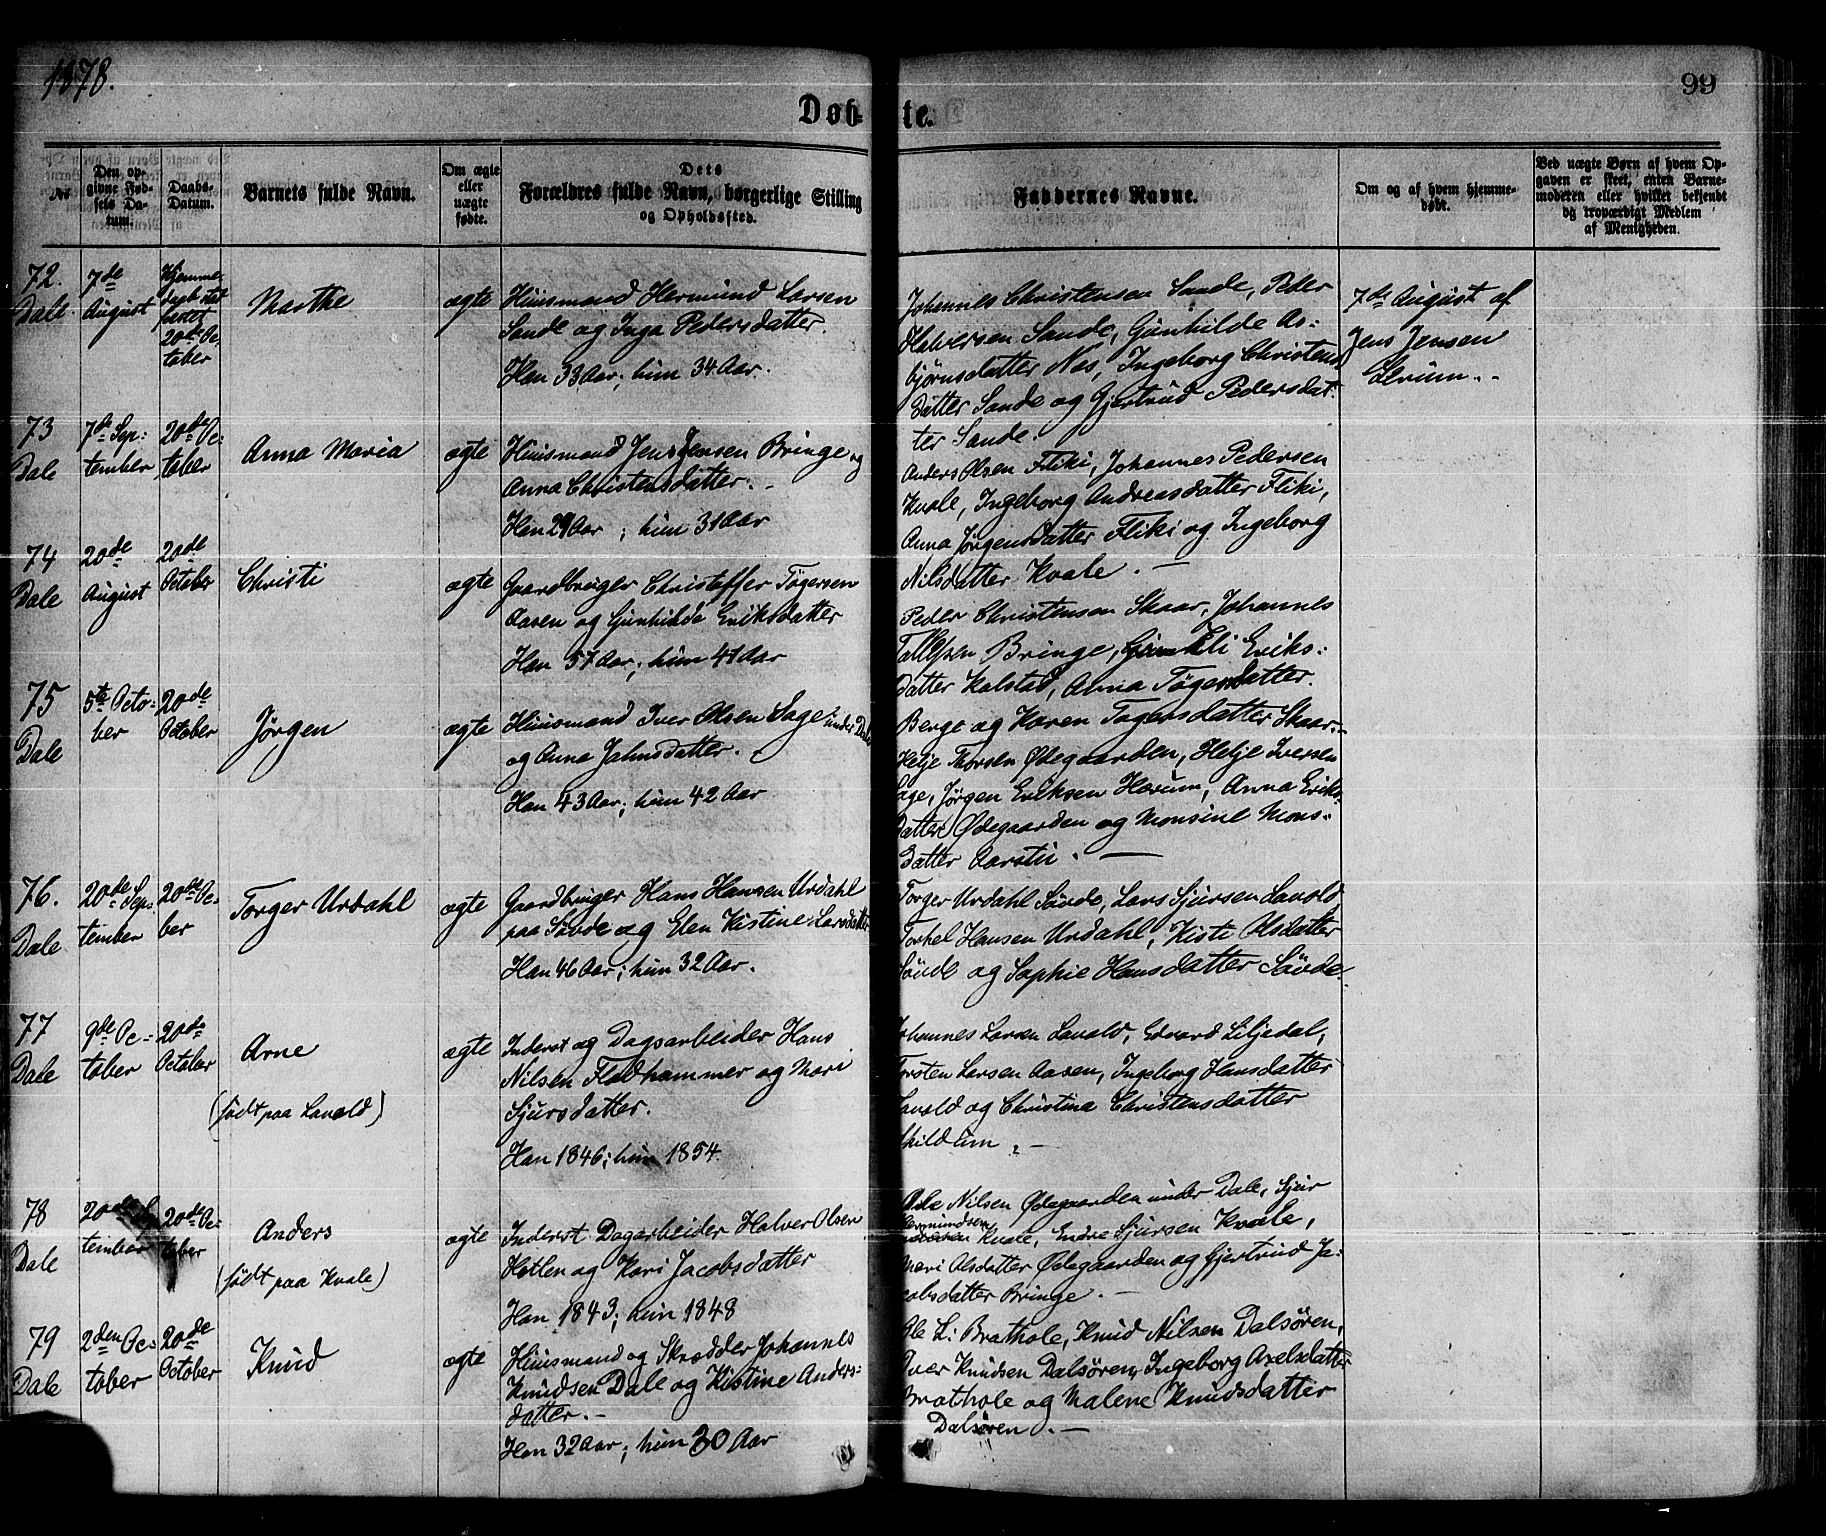 1878.
99
Døb- te.
No
Den op-
givne Fød-
sels Da-
tum.
Daabs-
Datum.
Barnets fulde Navn.
Om ægte
eller
uægte
fødte.
Dets
Forældres fulde Navn, borgerlige Stilling
og Opholdssted.
Faddernes Navne.
Om og af hvem hjemme-
døbt.
Ved uægte Børn af hvem Op-
gaven er skeet, enten Barne-
moderen eller hvilket bekjendt
og troværdigt Medlem
af Menigheden.
72.
Dale.
7de
August
Hjemme
daab stad
fæstet
20de Oc
tober
Marthe
ægte
Huusmand Hermund Larsen
Sande og Inga Pedersdatter.
Han 33 Aar; hun 34 Aar.
Johannes Christensen Sande, Peder
Halversen Sande, Gunhilde As-
bjørnsdatter Næs, Ingeborg Christens
datter Sande og Gjertrud Pedersdat-
ter Sande.
7de August af
Jens Jensen
73
Dale
7de Sep-
tember
20de Oc-
tober
Anna Maria
ægte
Huusmand Jens Jensen Bringe og
Anna Christensdatter. -
Han 29 Aar; hun 31 Aar
Anders Olsen Fliki, Johannes Pedersen
Kvale, Ingeborg Andreasdatter Fliki,
Anna Jørgensdatter Fliki og Ingeborg
Nilsdatter Kvale. -
74
Dale
20de
August
20de
October
Christi
ægte
Gaardbruger Christoffer Tøgersen
Aasen og Gunhilde Eriksdatter
Han 51 Aar; hun 41 Aar
Peder Christensen Skaar, Johannes
Bringe, Eriks-
datter Kalstad, Anna Tøgersdatter
Berge og Karen Tøgersdatter Skaar. -
75
Dale
5te Octo-
ber
20de
October
Jørgen
ægte
Huusmand Iver Olsen Sage under Dale
og Anna Jahnsdatter. -
Han 43 Aar; hun 42 Aar
Helje Thorsen Ødegaarden, Helje Iversen
Sage, Jørgen Eriksen Hærum, Anna Eriks-
datter Ødegaarden og Monsine Mons-
datter Aarstu. -
76.
Dale
20de Sep-
tember
20de Oc-
ber
Torger Urdahl
ægte
Gaardbruger Hans Hansen Urdahl
paa Søvde og Elen Kistine Larsdatter
Han 46 Aar; hun 32 Aar.
Torger Urdahl Søvde, Lars Sjursen Lavold,
Torkel Hansen Urdahl, Kisti Olsdatter
Søvde og Sophie Hansdatter Søvde.
77
Dale
9de Oc-
tober
20de
October
Arne
(født paa Lavold)
ægte
Inderst og Dagsarbeider Hans
Nilsen Flodhammer og Mari
Sjursdatter.
Han 1846; hun 1854.
Johannes Larsen Lavold, Edvard Liljedal,
Torsten Larsen Aasen, Ingeborg Hansdatter
Lavold og Christina Christensdatter
Skildum. -
78
Dale
20de Sep
tember
20de Oc-
tober
Anders
(født paa Kvale)
ægte
Inderst Dagarbeider Halver Olsen
Hetlen og Kari Jacobsdatter
Han 1843; hun 1848
Ole Nilsen Ødegaarden under Dale, Sjur
Hermundsen
Kvale, Endre Sjursen Kvale,
Mari Olsdatter Ødegaarden og Gjertrud Ja-
cobsdatter Bringe. -
79
Dale
2den Oc-
tober
20de
October
Knud
ægte
Huusmand og Skrædder Johannes
Knudsen Dale og Kistine Anders-
datter. -
Han 32 Aar; hun 30 Aar
Ole L: Brathole, Knud Nilsen Dalsøren,
Iver Knudsen Dalsøren, Ingeborg Axelsdatter
Brathole og Malene Knudsdatter
Dalsøren. -